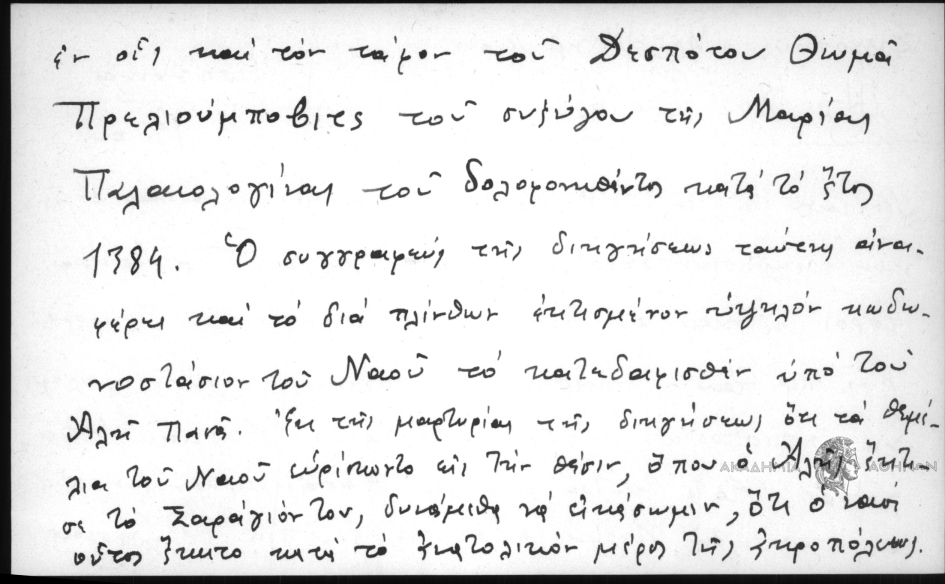 ἐν οἷς καὶ τὸν τάφον τοῦ Δεσπότου Θωμᾶ
Πρελιούμποβιτς τοῦ συζύγου τῆς Μαρίας
Παλαιολογίνας τοῦ δολοφονηθέντος κατὰ τὸ ἔτος
1384. Ὁ συγγραφεὺς τῆς διηγήσεως ταύτης ἀνα-
φέρει καὶ τὸ διὰ πλίνθων ἐκτισμένον ὑψηλὸν κωδω-
νοστάσιον τοῦ Ναοῦ τὸ κατεδαφισθὲν ὑπὸ τοῦ
Ἀλῆ Πασᾶ. Ἐκ τῆς μαρτυρίας τῆς διηγήσεως ὅτι τὰ θεμέ-
λια τοῦ Ναοῦ εὑρίσκοντο εἰς τὴν θέσιν, ὅπου ὁ Ἀλῆς ἔκτι-
σε τὸ Σαράγιόν του, δυνάμεθα νὰ εἰκάσωμεν, ὅτι ὁ ναὸς
οὗτος ἔκειτο κατὰ τὸ ἀνατολικὸν μέρος τῆς ἀκροπόλεως.
ΑΚΑΔΗΜΙΑ ΑΘΗΝΩΝ